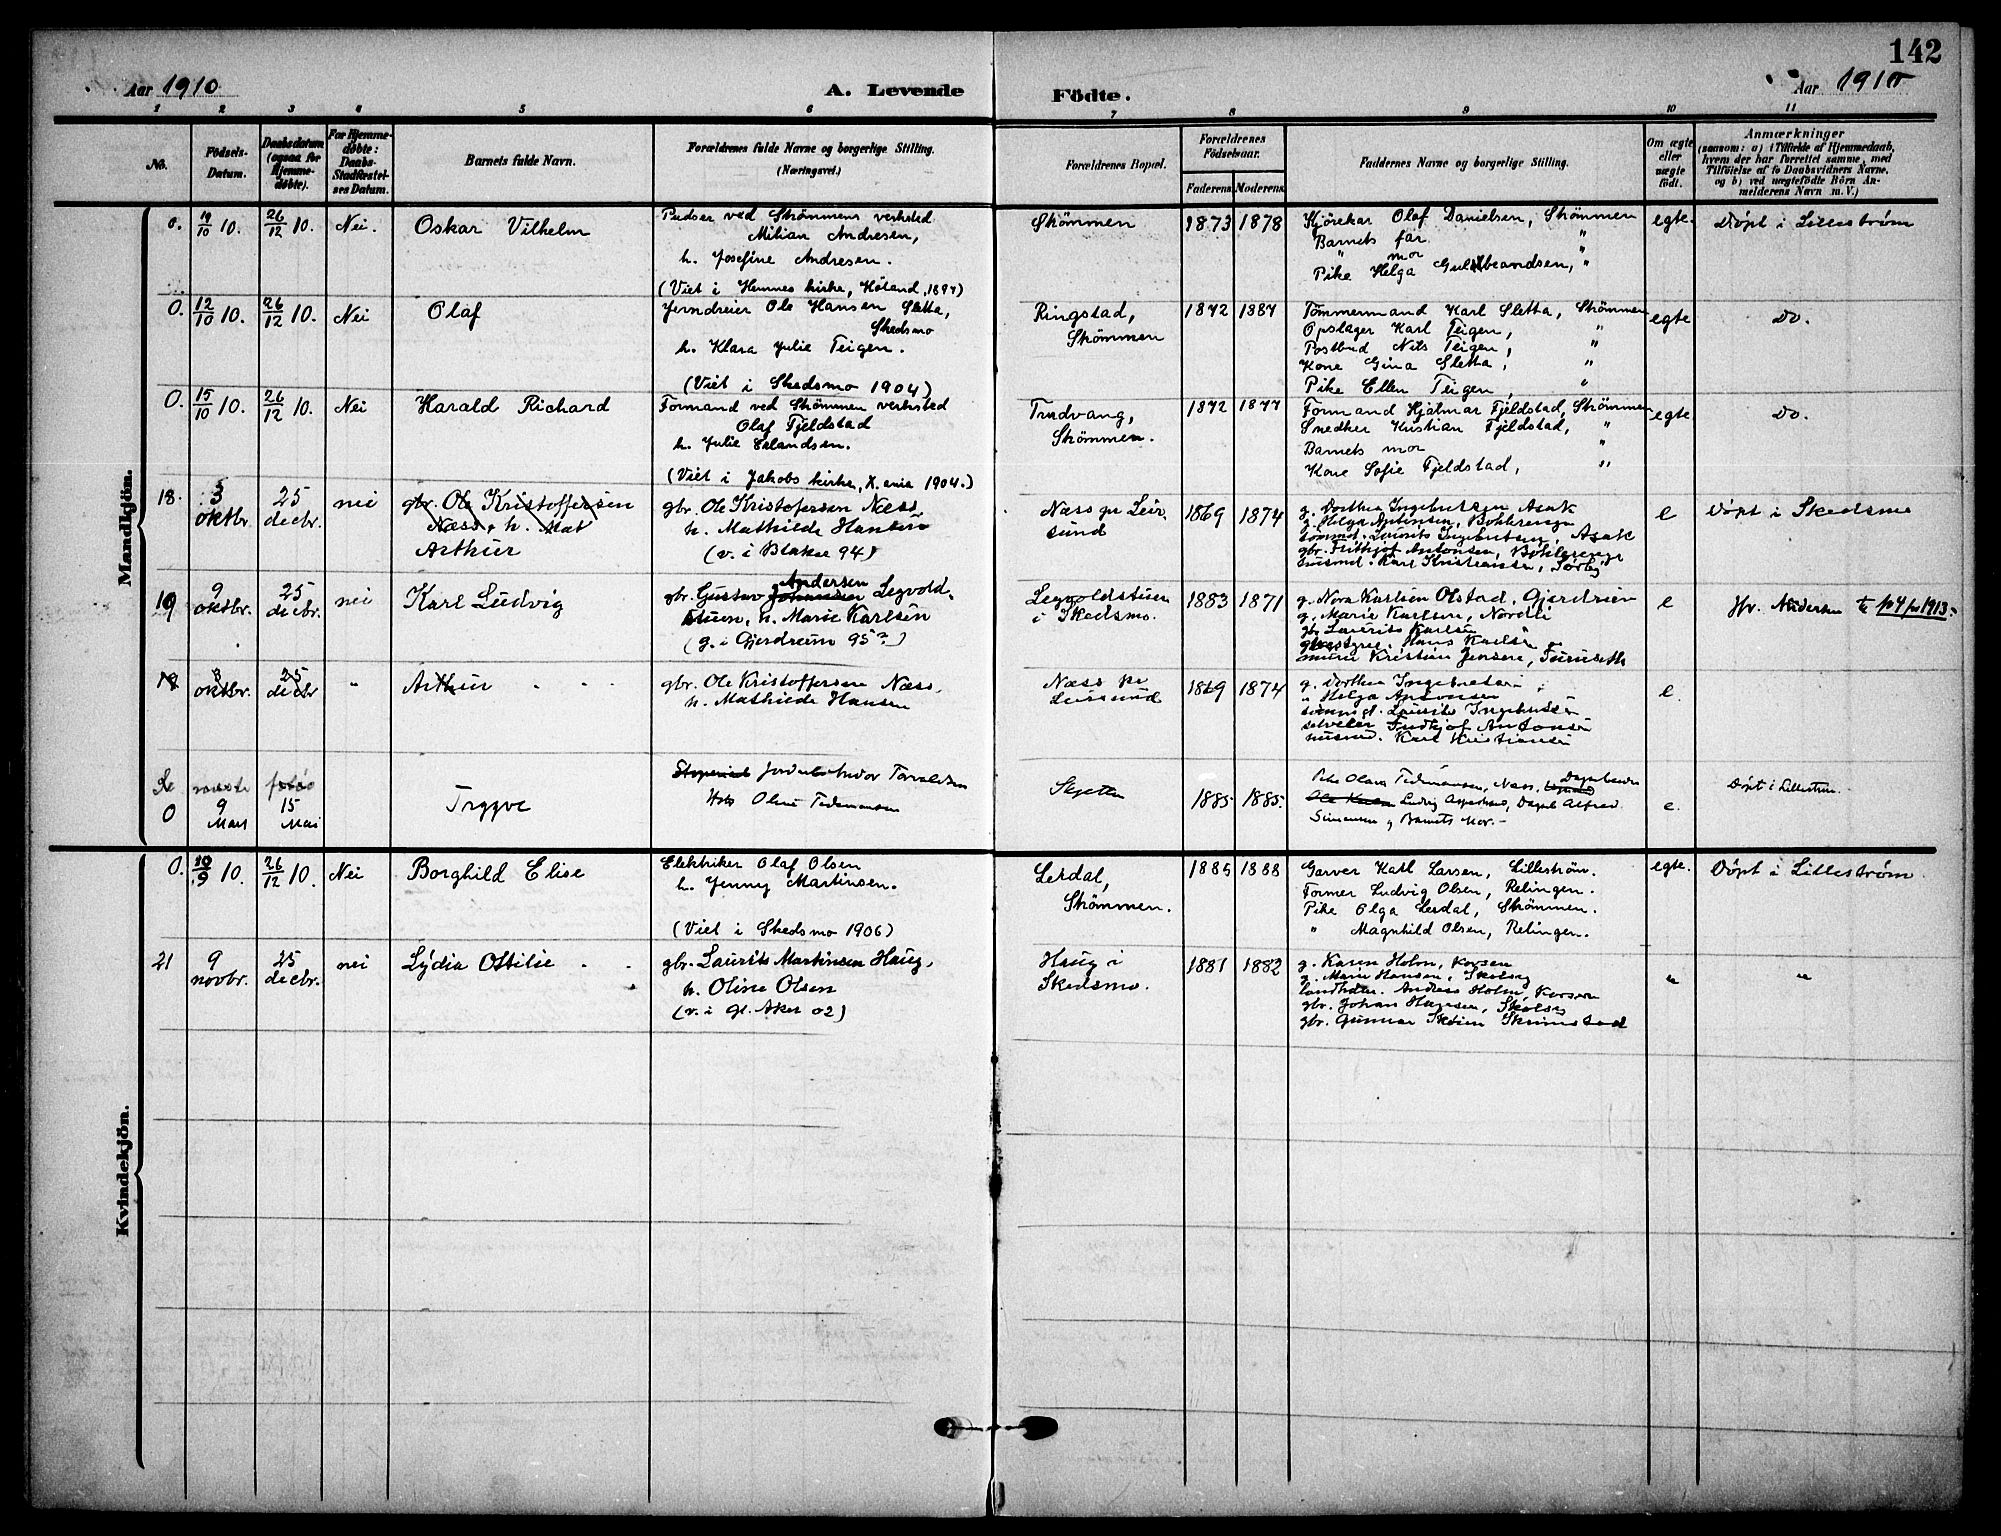 142
Aar 1910
A. Levende Födte.
Aar 1910
1 2 3 4 5 6 7 8 9 10 11
No.
Födsels-Datum.
Daabsdatum (ogsaa for Hjemme-döbte).
For Hjemme-döbte: Daabs-Stadfæstel-ses Datum.
Barnets fulde Navn.
Forældrenes fulde Navne og borgerlige Stilling.
(Næringsvei.)
Forældrenes Bopæl.
Forældrenes Födselsaar.
Faderens. Moderens.
Faddernes Navne og borgerlige Stilling.
Om ægte eller uægte födt.
Anmærkninger
(saasom: a) i Tilfælde af Hjemmedaab, hvem der har forrettet samme, med Tilföielse af to Daabsvidners Navne, og b) ved uægtefödte Börn An-melderens Navn m. V.)
Mandkjön.
0. 19/10 10. 26/12 10. Nei. Oskar Vilhelm
Pudser ved Strömmens verksted
Milian Andresen,
h. Josefine Andresen.
(Viet i Hemnes kirke, Höland, 1897)
Strömmen 1873 1878
Kjörekar Olaf Danielsen, Strömmen
Barnets far "
" mor
Pike Helga Guldbrandsen, "
egte. Döpt i Lilleström
0. 12/10 10. 26/12 10. Nei Olaf
Jerndreier Ole Hansen Sletta,
Skedsmo
h. Klara Julie Teigen.
(Viet i Skedsmo 1904)
Ringstad,
Strömmen
1872 1887
Tömmermand Karl Sletta, Strömmen
Opslager Karl Teigen, "
Postbud Nils Teigen, "
Kone Gina Sletta, "
Pike Ellen Teigen, "
egte Do.
0. 15/10 10. 26/12 10. Nei Harald Richard
Formand ved Strömmen verksted
Olaf Fjeldstad
h. Julie Erlandsen.
(Viet i Jakobs kirke, X.ania 1904.)
Trudvang,
Strömmen.
1872 1877
Formand Hjalmar Fjeldstad, Strömmen
Snedker Kristian Fjeldstad, "
Barnets mor "
Kone Sofie Fjeldstad, "
egte Do.
18. 3 oktbr. 25 decbr. nei
gbr. Ole Kristoffersen
Næss, h. Mat
Arthur
gbr. Ole Kristofersen Næss,
h. Mathilde Hansen
(v. i Blaker 94)
Næss pr Leir-
sund
1869 1874
g. Dorthea Ingebretsen Asak
g. Helga Antonsen, Böhlerenge
tömmd. Laurits Ingebretsen, Asak
gbr. Frithjof Antonsen, Böhlerenge
Karl Kristiansen, Sörby
e Döpt i Skedsmo
19 9 oktbr. 25 decbr. nei Karl Ludvig
gbr. Gustav Johansen Andersen Legvold-
stuen, h. Marie Karlsen
(g. i Gjerdrum 95?)
Legvoldstuen
i Skedsmo.
1883 1871
g. Nora Karlsen Olstad, Gjerdrum
g. Marie Karlsen, Nordli
gbr Laurits Karlsen "
Hans Karlsen
murer Kristian Jensen, Furuseth
e
18 3 oktbr. 25 decbr " Arthur
gbr. Ole Kristoffersen Næss,
h. Mathilde Hansen
Næss pr
Leirsund
1869 1874
g. Dorthea Ingebretsen
" Helga Antonsen
tömmd. Laurits Ingebretsen
selveier Fridtjof Antonsen
Karl Kristiansen
e.
Se næste
0 9 Mars 15 Mai Trygve
Torvaldsen
Hst Oline Tidemansen
Skjetten
1885 1885.
Pike Olava Tidemansen, Næss,
Ludvig Alfred
Simensen og Barnets Mor.
e. Döpt i Lilleström.
Kvindekjön.
0. 10/9 10. 26/12 10. Nei Borghild Elise
Elektriker Olaf Olsen
h. Jenny Martinsen.
(Viet i Skedsmo 1906)
Lerdal,
Strömmen.
1885 1888
Garver Karl Larsen, Lilleström.
Former Ludvig Olsen, Relingen.
Pike Olga Lerdal, Strömmen.
" Magnhild Olsen, Relingen.
egte. Döpt i Lilleström
21 9 novbr. 25 decbr. nei Lydia Ottilie
gbr. Laurits Martinsen Haug,
h. Oline Olsen
(v. i gl. Aker 02)
Haug i
Skedsmo.
1881 1882
g. Karen Holm, Korsen
g. Marie Hansen, Skolseg
landhdlr. Andreas Holm, Korsen
gbr. Johan Hansen, Skolseg
gbr. Gunnar Skøien Skrimstad
" "